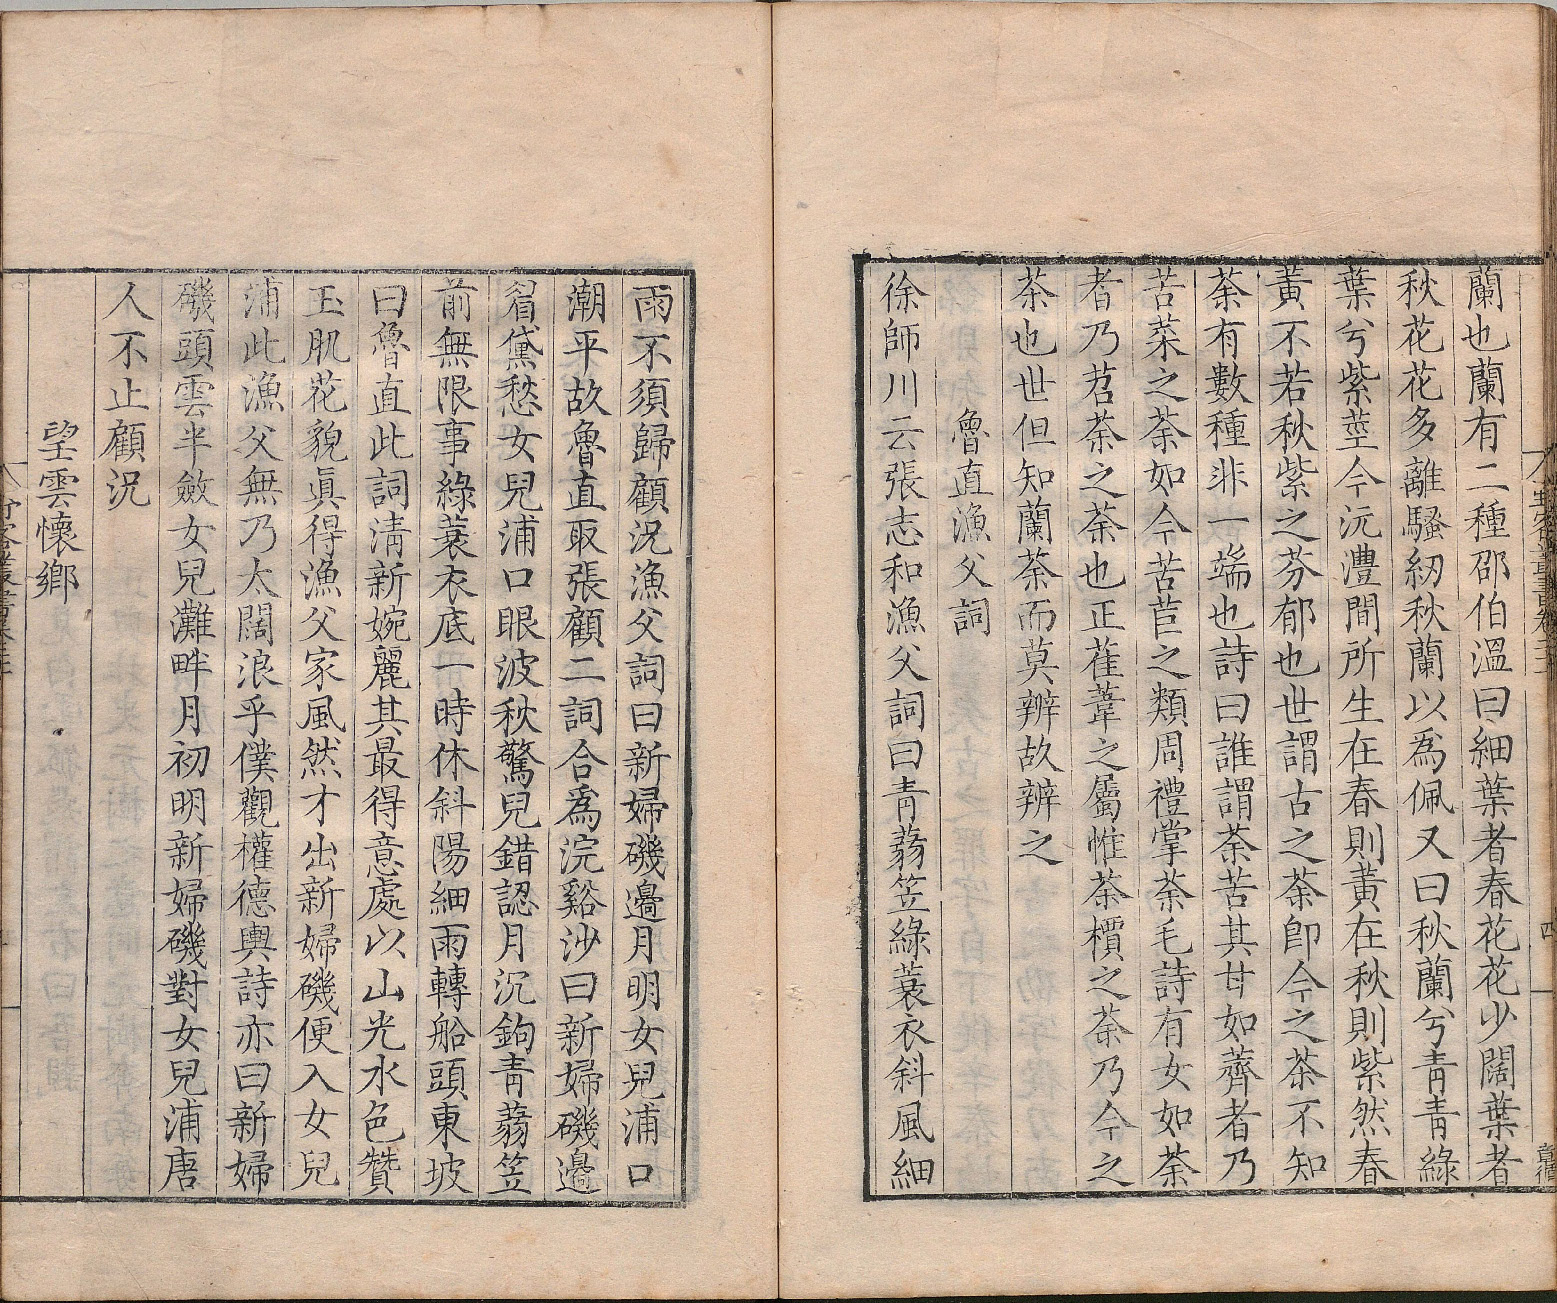 蘭也蘭有二種邵伯溫曰細葉者春花花少闊葉者
秋花花多離騷紉秋蘭以爲佩又曰秋蘭兮青青綠
葉兮紫莖今沅澧間所生在春則黃在秋則紫然春
黃不若秋紫之芬郁也世謂古之荼即今之茶不知
荼有數種非一端也詩曰誰謂荼苦其甘如薺者乃
苦菜之荼如今苦苣之類周禮掌荼毛詩有女如荼
者乃苕荼之荼也正萑葦之屬惟荼檟之荼乃今之
茶也世但知蘭荼而莫辨故辨之
魯直漁父詞
徐師川云張志和漁父詞曰青蒻笠綠蓑衣斜風細
雨不須歸顧況漁父詞曰新婦磯邊月明女兒浦口
潮平故魯直取張顧二詞合爲浣谿沙曰新婦磯邊
眉黛愁女兒浦口眼波秋驚兒錯認月沉鉤青蒻笠
前無限事綠蓑衣底一時休斜陽細雨轉船頭東坡
曰魯直此詞清新婉麗其最得意處以山光水色贊
玉肌花貌眞得漁父家風然才出新婦磯便入女兒
浦此漁父無乃太闊浪乎僕觀權德輿詩亦曰新婦
磯頭雲半斂女兒灘畔月初明新婦磯對女兒浦唐
人不止顧況
望雲懷鄉